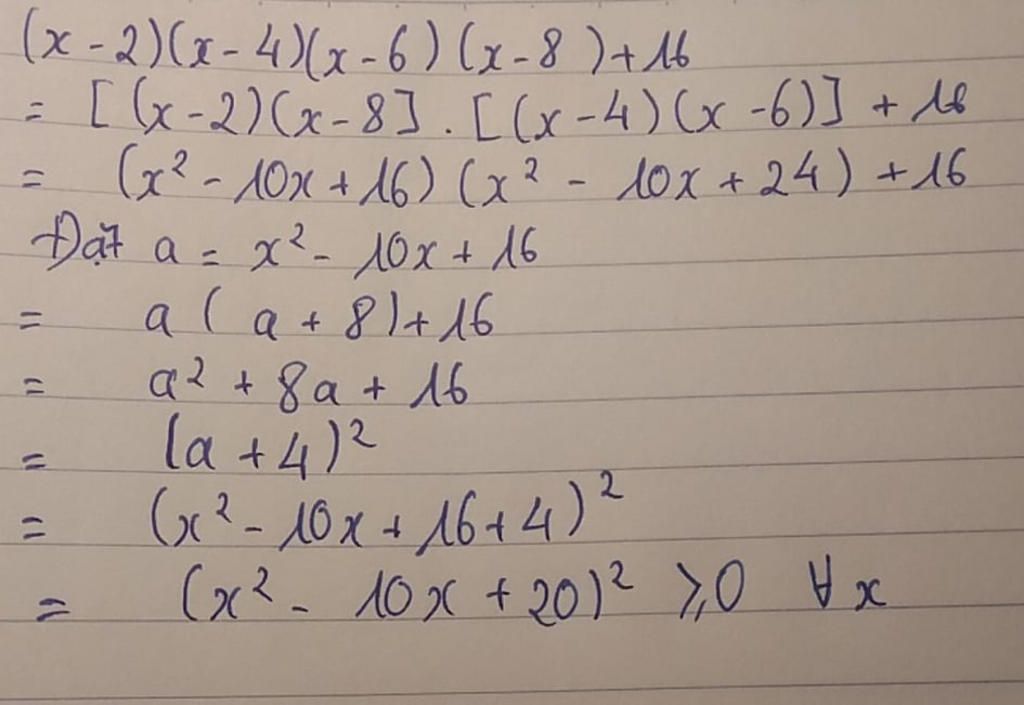 (x - 2)(x - 4)(x - 6)(x - 8) + 16
= [(x - 2)(x - 8] . [(x - 4)(x - 6)] + 16
= (x² - 10x + 16)(x² - 10x + 24) + 16
Đặt a = x² - 10x + 16
= a(a + 8) + 16
= a² + 8a + 16
= (a + 4)²
= (x² - 10x + 16 + 4)²
= (x² - 10x + 20)² ⩾ 0 ∀ x